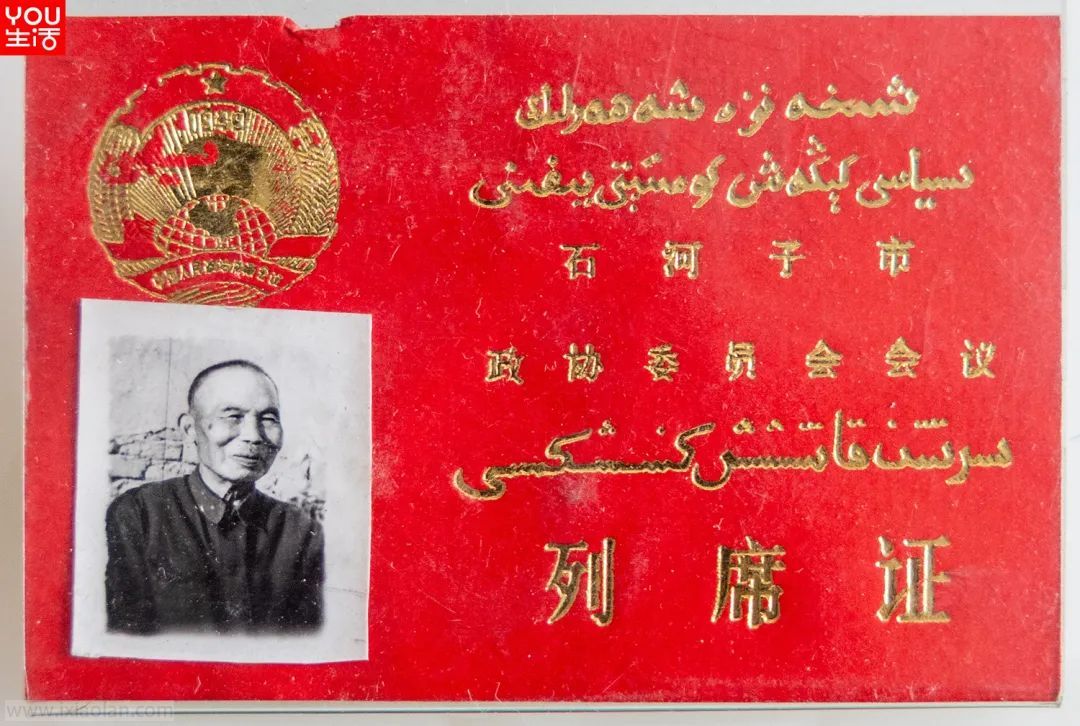 YOU
生活
1949
شىخەنزە شەھەرلىك
سىياسىي كېڭەش كومىتېتى يىغىنى
石河子市
政协委员会会议
سىرتتىن قاتنىشىش كىنىشكىسى
列席证
www.ixiaolan.com